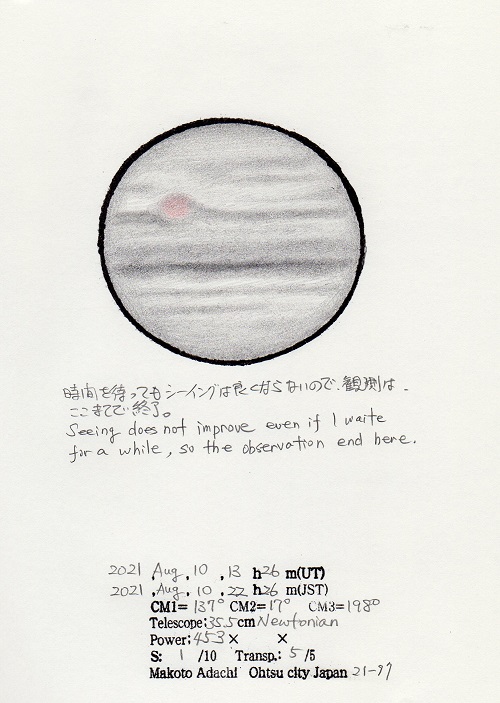 時間を待ってもシーイングは良くならないので、観測は、
ここまでで終了。
Seeing does not improve even if I waite
for a while, so the observation end here.
2021 ,Aug, 10 , 13 h26 m(UT)
2021 ,Aug, 10 , 22 h26 m(JST)
CM1= 137° CM2=17° CM3=198°
Telescope:35.5cm Newtonian
Power;453× ×
S: 1 /10 Transp.: 5 /5
Makoto Adachi Ohtsu city Japan 21-97